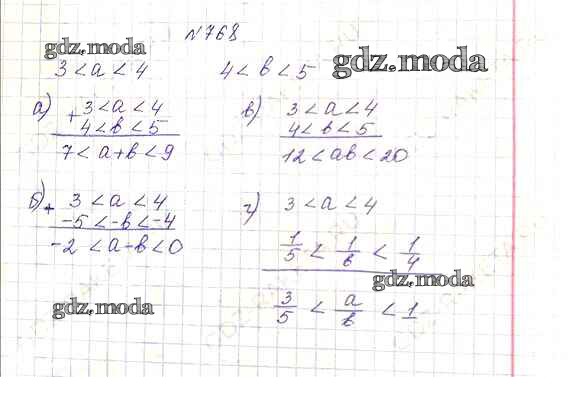 №768
gdz.moda
3 < a < 4    4 < b < 5    gdz.moda
а) + 3 < a < 4
4 < b < 5
7 < a + b < 9
в) 3 < a < 4
4 < b < 5
12 < ab < 20
б) + 3 < a < 4
-5 < -b < -4
-2 < a - b < 0
г) 3 < a < 4
1/5 < 1/b < 1/4
gdz.moda
3/5 < a/b < 1
gdz.moda